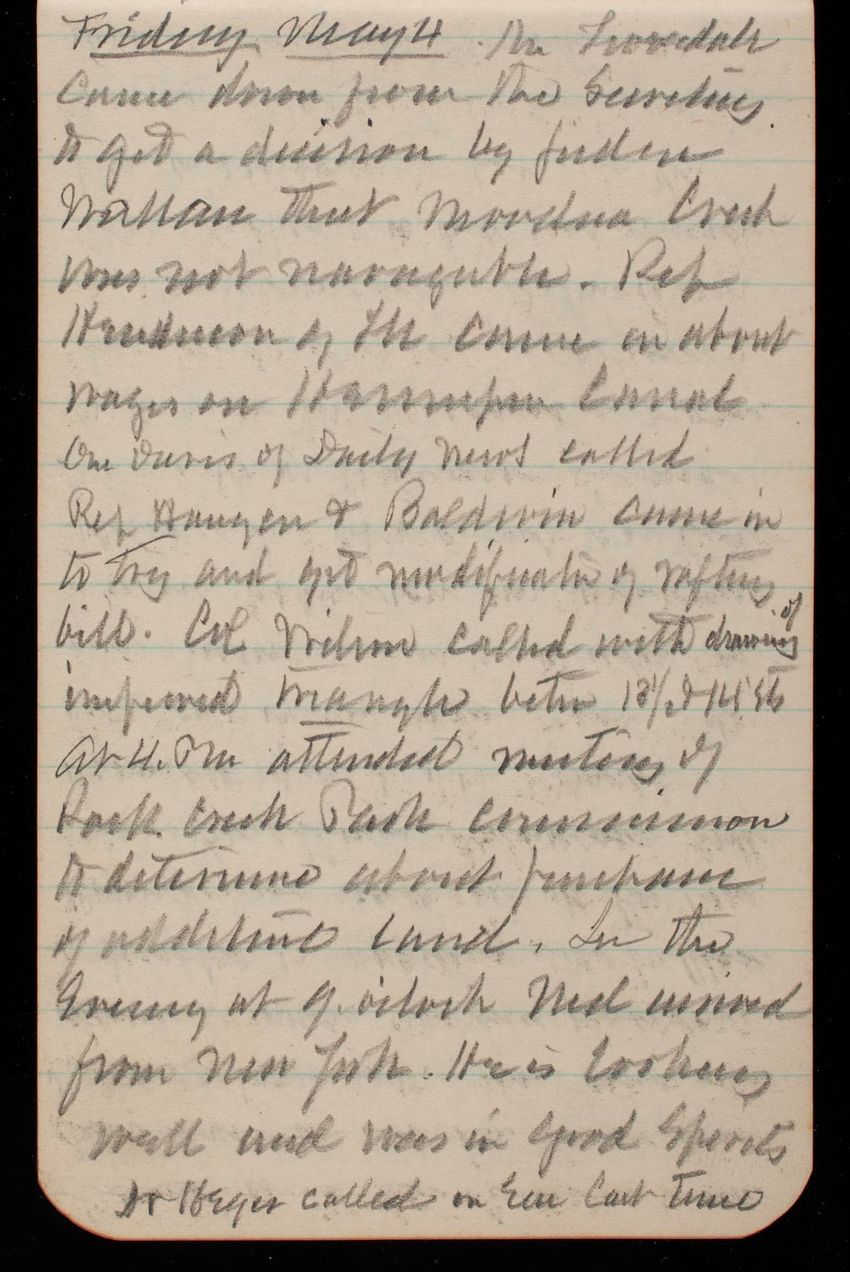 Friday May 4. Mr Truesdale
Came down from the Secretary
to get a decision by Judge
that Creek
was not navagable. Rep
Henderson of Ill came in about
wages on Hennepin Canal
One Davis of Daily News called
Rep Haugen & Baldwin came in
to try and get modification of rafting
bill. Col Wilson called with drawing of
improved triangle betw 13½ & 14 Sts
At 4. Pm attended meeting of
Rock Creek Park commission
to determine about purchase
of additional land. In the
Evening at 9. oclock Ned arrived
from New York. He is looking
well and was in good Spirits
Dr Heger called on Eva last time